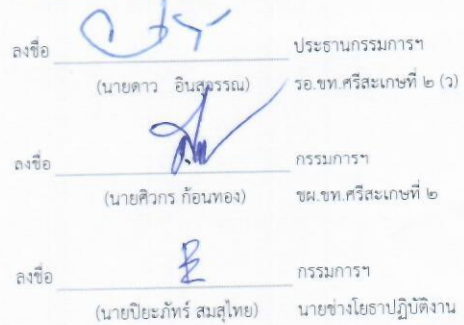 ลงชื่อ ประธานกรรมการฯ
(นายดาว อินสุวรรณ) รอ.ขท.ศรีสะเกษที่ ๒ (ว)
ลงชื่อ กรรมการฯ
(นายศิวกร ก้อนทอง) ชผ.ขท.ศรีสะเกษที่ ๒
ลงชื่อ กรรมการฯ
(นายปิยะภัทร์ สมสุไทย) นายช่างโยธาปฏิบัติงาน